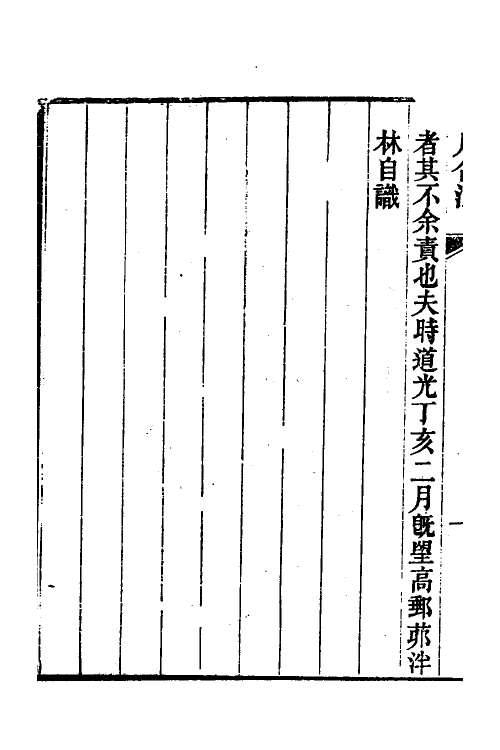 者其不余責也夫時道光丁亥二月旣望高郵茆泮
林自識
一